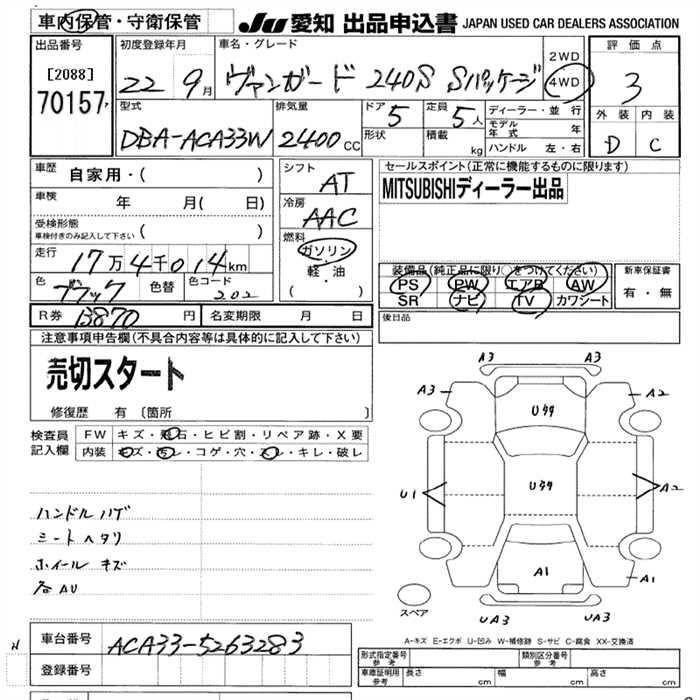 車内保管・守衛保管
JU 愛知 出品申込書 JAPAN USED CAR DEALERS ASSOCIATION
出品番号
[2088]
70157
初度登録年月
22 9月
車名・グレード
ヴァンガード 240S Sパッケージ
2WD
4WD
評価点
3
外装 内装
D C
型式
DBA-ACA33W
排気量
2400 CC
ドア 5
形状
定員 5人
積載 kg
ディーラー・並行
モデル年式 年
ハンドル 左・右
車歴 自家用・( )
車検 年 月( 日)
受検形態
車検付きのみ記入して下さい ( )
走行
17万4千014km
色 ブラック 色替 色コード 202
R券 13870 円 名変期限 月 日
シフト
AT
冷房
AAC
燃料
ガソリン
・
軽・油
( )
セールスポイント(正常に機能するものに限ります)
MITSUBISHIディーラー出品
装備品(純正品に限り○をつけてください)
PS PW エアB AW
SR ナビ TV カワシート
新車保証書
有・無
後日品
注意事項申告欄(不具合内容等は具体的に記入して下さい)
売切スタート
修復歴 有 〔箇所 〕
検査員
記入欄
FW キズ・飛石・ヒビ割・リペア跡・X要
内装 キズ・汚レ・コゲ・穴・スレ・キレ・破レ
ハンドル ハゲ
シート ヘタリ
ホイール キズ
各AU
A3 A3
A3 A2
Uタタ
U1 Uタタ A2
A1
A1
スペア
UA3 UA3
A-キズ E-エクボ U-凹み W-補修跡 S-サビ C-腐食 XX-交換済
車台番号 ACA33-5263283
登録番号
型式指定番号
参考
類別区分番号
参考
車庫証明用
参考
長さ cm 幅 cm 高さ cm